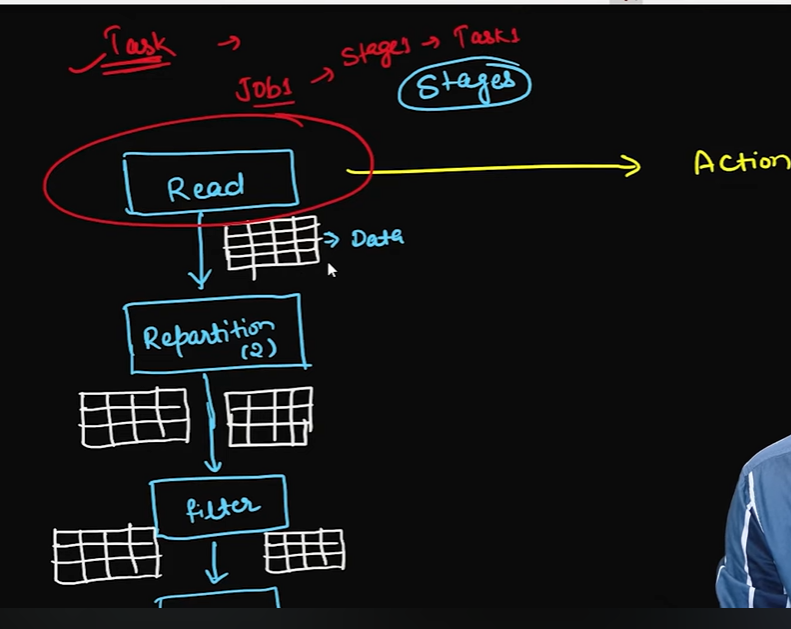 Task →
Jobs → Stages → Tasks
Stages
Read
Action
→ Data
Repartition
(2)
filter